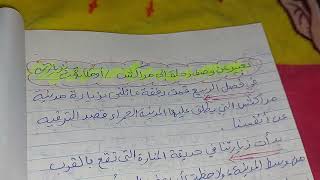 تعبير عن وصف رحلة إلى مراكش /
في فصل الربيع قمت رفقة عائلتي بزيارة مدينة
مراكش التي يطلق عليها المدينة الحمراء قصد الترفيه
عن أنفسنا
بدأت زيارتنا في حديقة المنارة التي تقع بالقرب
من وسط المدينة